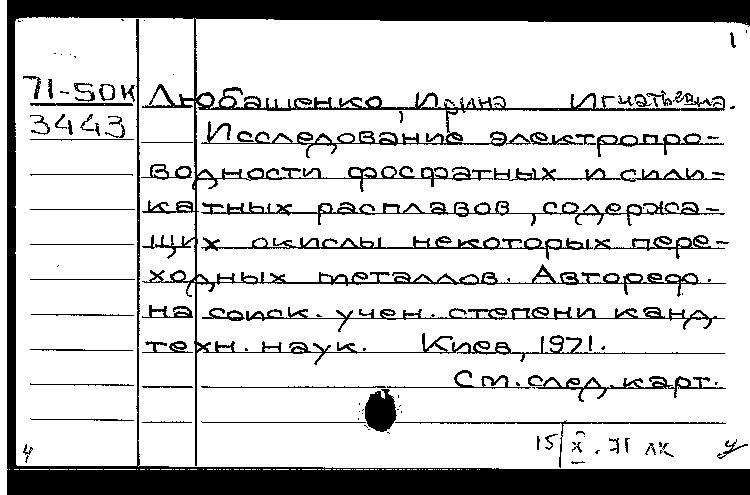 1
71-50к Любашенко, Ирина Игнатьевна.
3443 Исследование электропро-
водности фосфатных и сили-
катных расплавов, содержа-
щих окислы некоторых пере-
ходных металлов. Автореф.
на соиск. учен. степени канд.
техн. наук. Киев, 1971.
См. след. карт.
15/X.71 лк
4